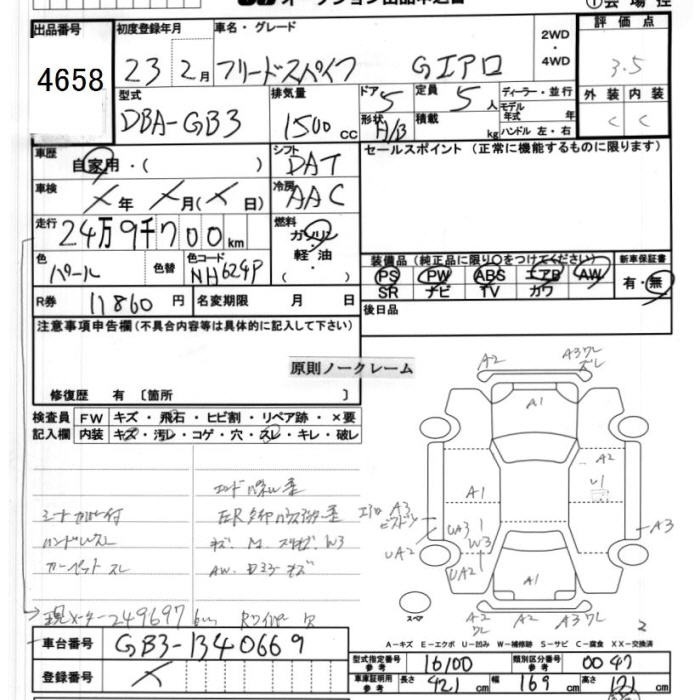 オークション出品申込書
出品番号 初度登録年月 車名・グレード 2WD・4WD 評価点
4658 23 2月 フリードスパイク Gエアロ 3.5
型式 排気量 ドア 定員 ディーラー・並行 外装 内装
DBA-GB3 1500cc 5 5人 モデル年式 年 C C
形状 積載 ハンドル 左・右
kg
車歴 シフト セールスポイント (正常に機能するものに限ります)
自家用・( ) DAT
車検 冷房
×年 ×月(×日) AAC
走行 燃料
24万9千700km ガソリン・軽油・( )
色 色替 色コード 装備品 (純正品に限り○をつけてください) 新車保証書
パール NH624P PS PW ABS エアB AW 有・無
SR ナビ TV カワ
R券 11860円 名変期限 月 日 後日品
注意事項申告欄(不具合内容等は具体的に記入して下さい)
原則ノークレーム
修復歴 有 〔箇所 〕
検査員 FW キズ・飛石・ヒビ割・リペア跡・×要
記入欄 内装 キズ・汚レ・コゲ・穴・スレ・キレ・破レ
シートカバー付
ハンドルスレ
カーペットスレ
AW
現メーター249697km Rワイパー欠
A2 A3ワレ
ズレ
A1
A2
A1 U1
A3
UA3 W3 A3
UA2 UA2
A1
スペア A2 A2 A3ワレ
ワレ
2
A-キズ E-エクボ U-凹み W-補修跡 S-サビ C-腐食 XX-交換済
車台番号 GB3-1340669
型式指定番号 参考 16100 類別区分番号 参考 0047
登録番号 ×
車庫証明用 参考 長さ 421cm 幅 169cm 高さ 171cm